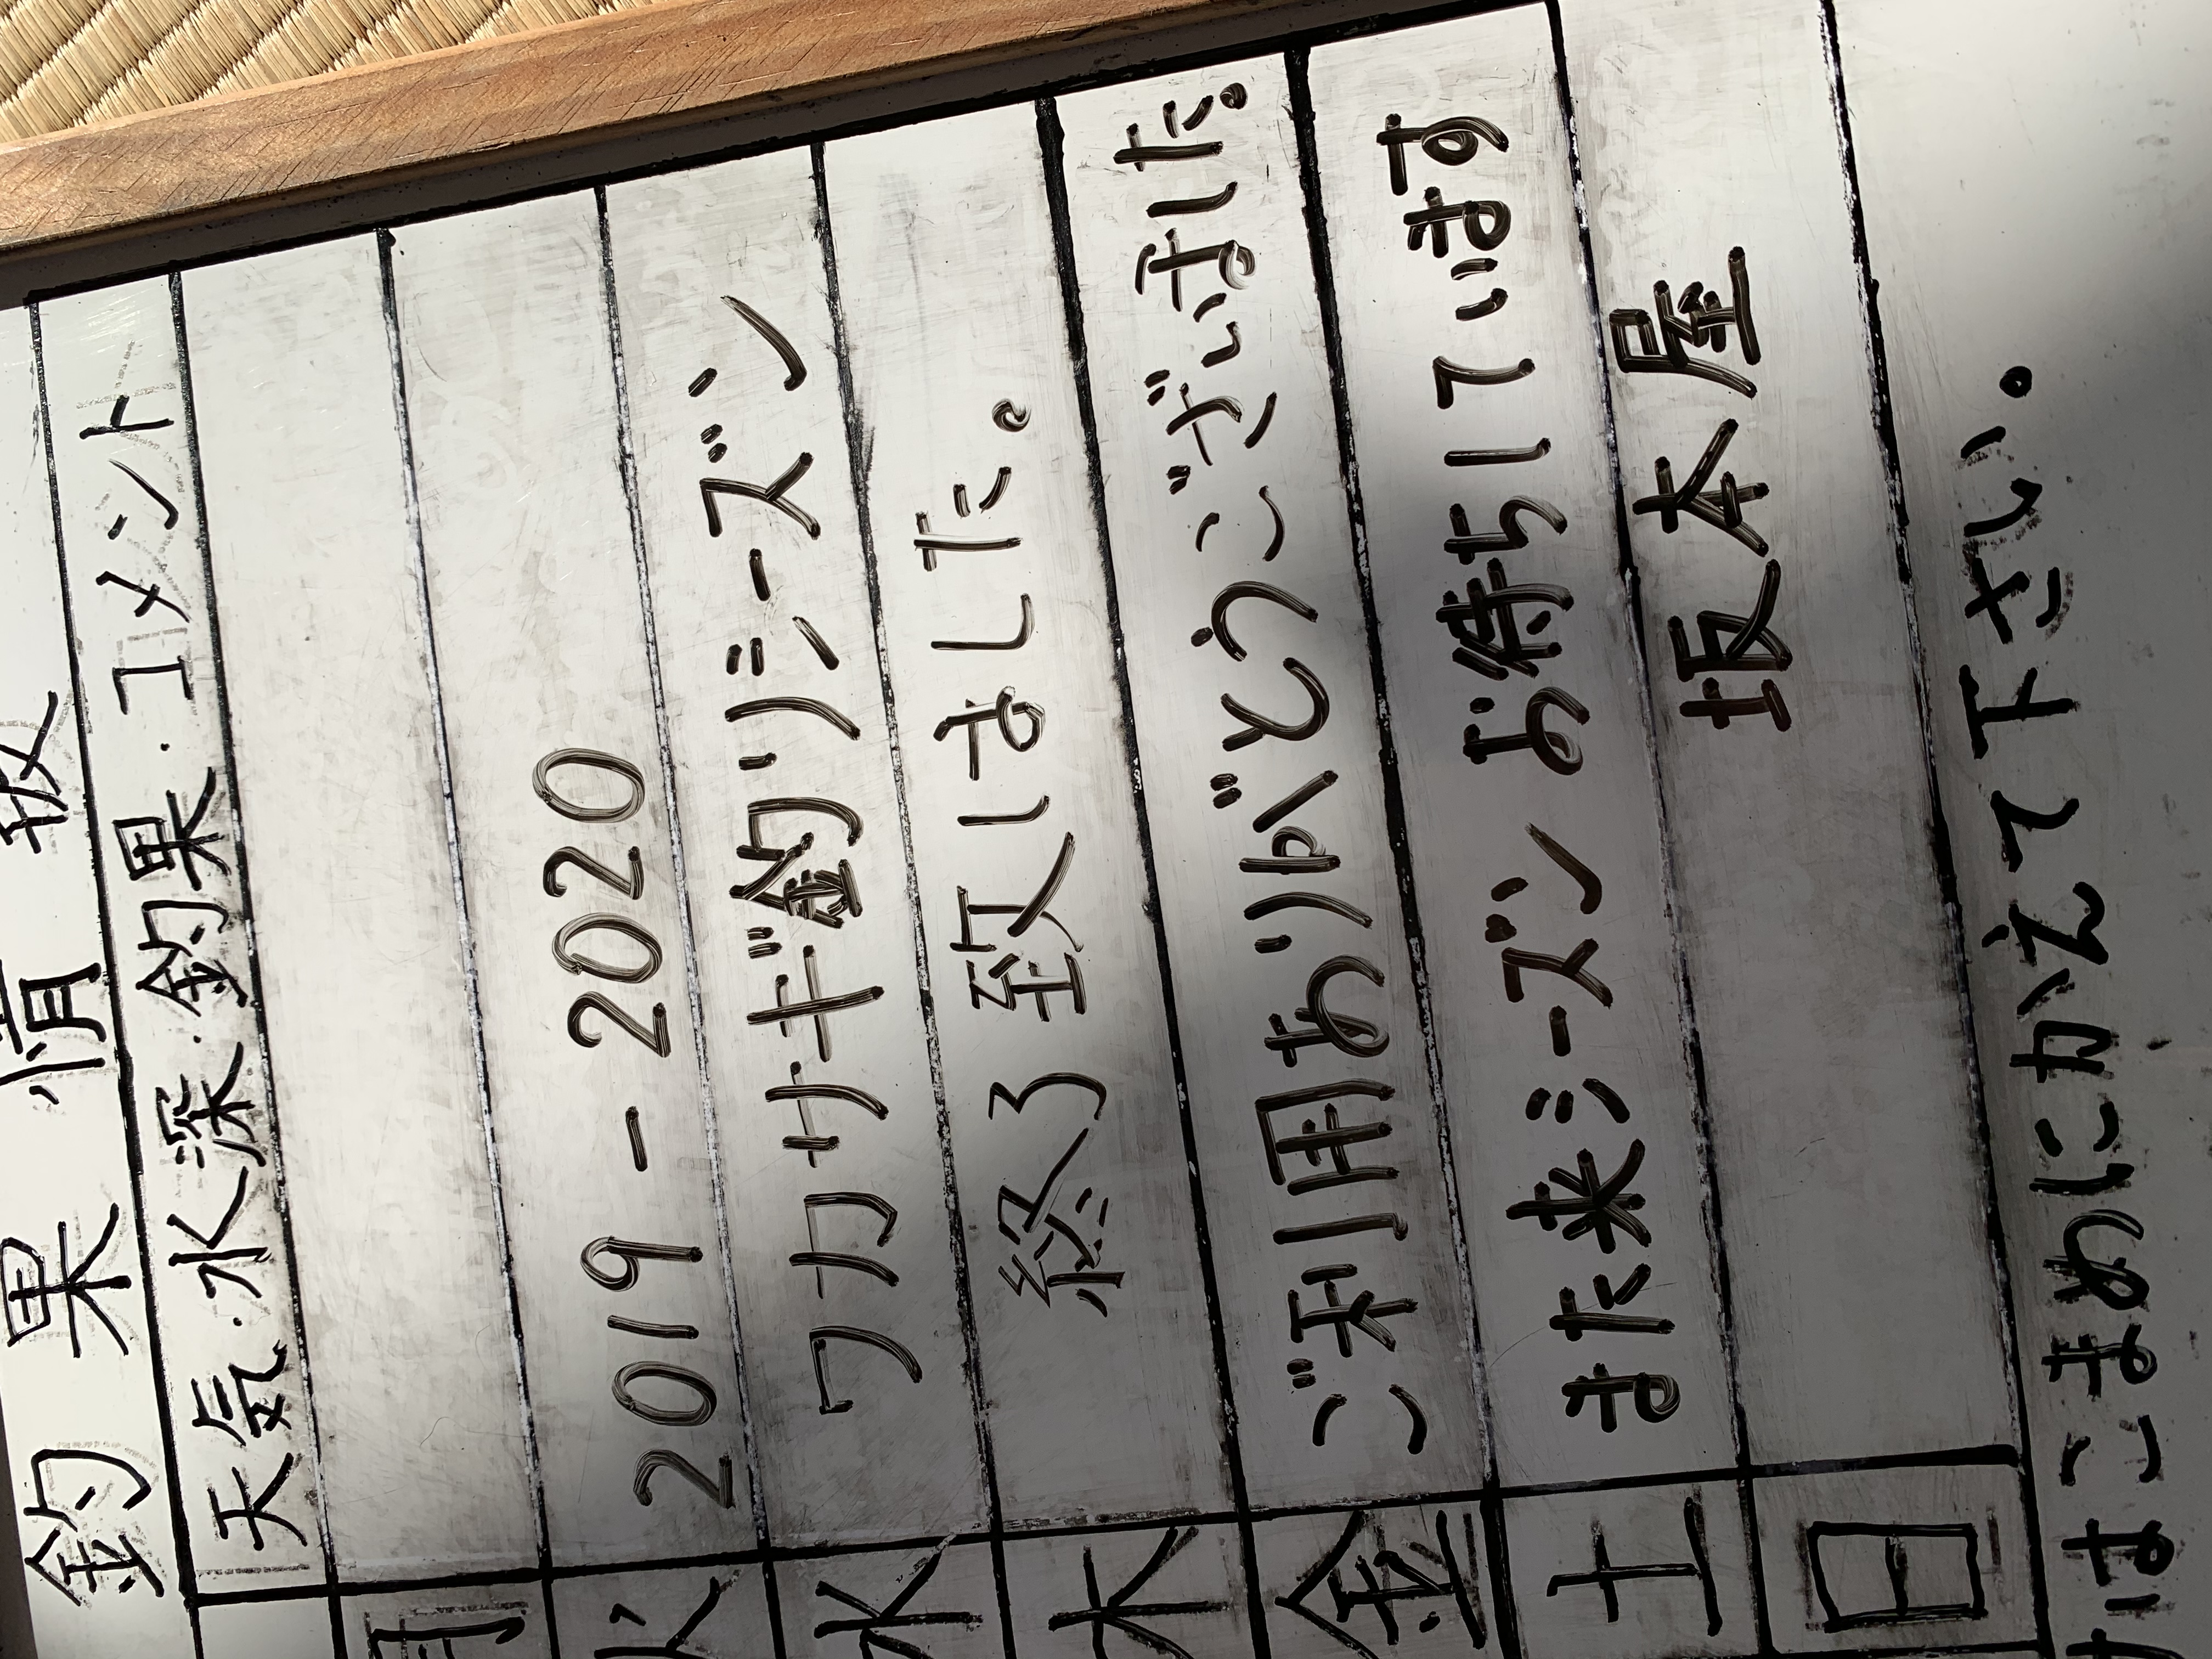 釣果情報
天気・水深・釣果・コメント
月
火 2019 - 2020
水 ワカサギ釣りシーズン
木 終了致しました。
金 ご利用ありがとうございました。
土 また来シーズン お待ちしています
日 坂本屋
はこまめにかえて下さい。